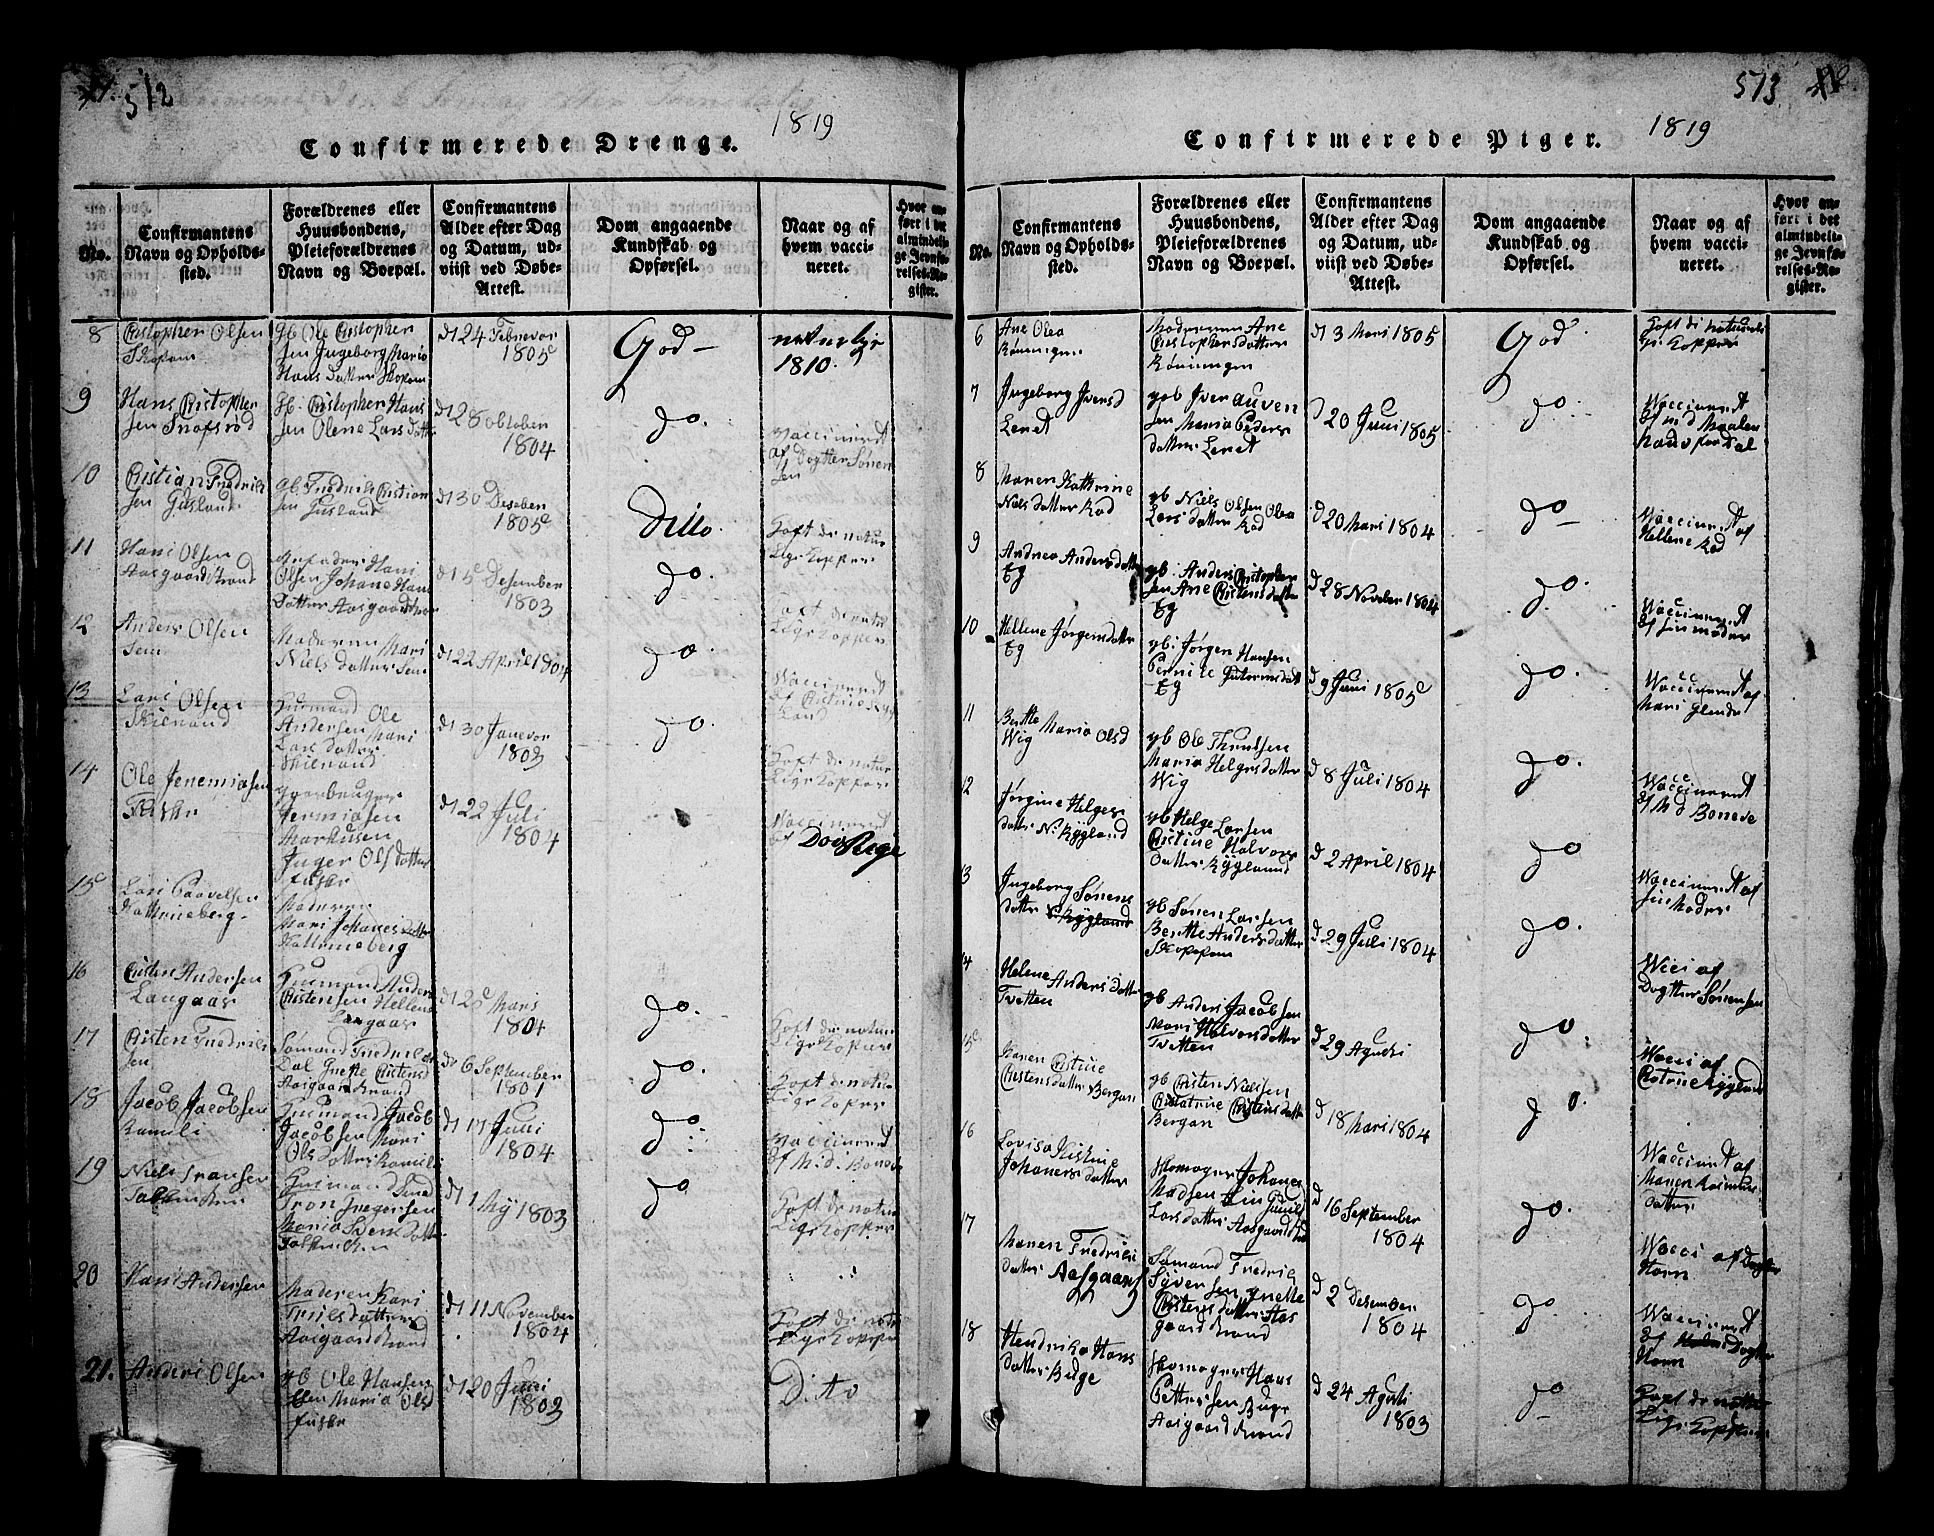 512
Confirmerede Drenge.
1819
No.
Confirmantens
Navn og Opholds-
sted.
Forældrenes eller
Huusbondens,
Pleieforældrenes
Navn og Boepæl.
Confirmantens
Alder efter Dag
og Datum, ud-
viist ved Døbe-
Attest.
Dom angaaende
Kundskab og
Opførsel.
Naar og af
hvem vacci-
neret.
Hvor an-
ført i det
almindeli-
ge Jevnfø-
relses-Re-
gister.
8
Cristopher Olsen
Skopem
gb Ole Cristopher
sen Ingeborg Maria
Hans datter Skopem
d 24 Februvor
1805
God
naturlige
1810.
9
Hans Cristopher
sen
gb. Cristopher Hans
sen Olene Lars datter
d 28 October
1804
do.
Vaccinerdt
af Dogtter Sønen
sen
10
Cristian Fredrik
sen Gusland
gb Fredrik Cristian
sen Gusland
d 30 Deseber
1805
Ditto.
Haft de natur
lige kopper
11
Hans Olsen
Aasgaardstrand
Hans
Olsen Johane Hans
datter Aasgaardstran
d 15 Desember
1803
do.
Haft de natur
lige kopper
12
Anders Olsen
Sem
Moderen Mari
Niels datter Sem
d 22 April 1804
do.
Vaccinerdt
af Cristine
13
Lars Olsen
Skienand
Husmand
Andersen Ole
Lars datter Mari
Skienand
d 30 Januvor
1803
do.
Haft de natur
lige kopper
14
Ole Jeremiasen
gaarbruger
Jermiasen
Markusen
Inger Ols datter
d 22 Juli
1804
Vaccinerdt
af
15
Lars Paavelsen
Kattrineberg
Moderen
Mari Johanes datter
Kattrineberg
16
Cristen Andersen
Langaas
Husmand Anders
Cristensen Hellene
Langaas
d 25 Mars
1804
do.
Haft de natur
lige kopper
17
Cristen Fredrik
sen
Sømand Fredrik
Dal Cristens
Aasgaardstrand
d 6 September
1801
do.
Haft de natu
lige kopper
18
Jacob Jacobsen
Ramsli
Husmand Jacob
Jacobsen Mari
Ols datter Ramsli
d 17 Juli
1804
do.
Vaccinerdt
af M. d. Boneve
19
Niels Transen
Husmand
Tron Iversen
Maria datter
d 1 My 1803
do
Haft de natur
lige kopper
20
Hans Andersen
Moderen Kari
Truls datter
Aasgaardstrand
d 11 November
1804
Haft de natu
lige kopper
21.
Anders Olsen
gb Ole Hansen
Maria Ols
d 20 Juni
1803
Dito
513
Confirmerede Piger.
1819
No.
Confirmantens
Navn og Opholds-
sted.
Forældrenes eller
Huusbondens,
Pleieforældrenes
Navn og Boepæl.
Confirmantens
Alder efter Dag
og Datum, ud-
viist ved Døbe-
Attest.
Dom angaaende
Kundskab og
Opførsel.
Naar og af
hvem vacci-
neret.
Hvor an-
ført i det
almindeli-
ge Jevnfø-
relses-Re-
gister.
6
Ane Olea
Rønningen
Moderen Ane
Cristophersdatter
Rønningen
d 3 Mars 1805
God
Haft di naturli
ge kopper
7
Ingeborg Iversd
Leret
gb Iver
sen Maria Peders
datter Leret
d 20 Juni 1805
do.
Waccinerdt
8
Maren Kattrine
Niels datter Rød
gb Niels Olsen Olea
Lars datter Rød
d 20 Mars 1804
do
Waccinerdt af
Hellene Rød
9
Andrea Anders datter
Eg
gb. Anders Cristopher
sen Ane Cristens datter
Eg
d 28 November 1804
do.
Waccinerdt
af sin moder
10
Hellene Jørgens datter
Eg
gb. Jørgen Hansen
Pernille Gutorms datt
Eg
d 9 Juni 1805
do.
Waccinerdt af
Mari
11
Bertte Maria Olsd
Wig
gb Ole Thrulsen
Maria Helges datter
Wig
d 8 Juli 1804
do.
Waccinerdt
af M d Boneve
12
Jørgine Helges
datter N. Rygland
gb Helge Larsen
Cristine Halvors
datter Rygland
d 2 April 1804
do
Waccinerdt af
sin Moder
13
Ingeborg Sørens
datter Rygland
gb Søren Larsen
Bertte Anders datter
Skopem
d 29 Juli 1804
do.
Wacci af
Dogtter Sørensen
14
Helene Anders datter
Tvetten
gb Anders Jacob sen
Mari Halvorsdatter
Tvetten
d 29 Agusti
do
Wacci af
Rygland
15
Maren Cristine
Cristens datter Bergan
gb Cristen Nielsen
Cristens datter
Bergan
d 18 Mars 1804
do.
Waccinerdt af
Maren Rasmus
datter
16
Lovisa Kistine
Johanes datter
Skomager Johanes
Madsen
Lars datter Aasgaardstrd
d 16 September
1804
do.
Wacci af Dogter
Horn
17
Maren Fredriks
datter Aasgaards
Sømand Fredrik
Syversen
Cristens datter Aas
gaardstrand
d 2 Desember
1804
do.
Waccinerdt
af Dogter
Horn
18
Hendrika Hans
datter Buge
Skomager Hans
Pettersen Buge
Aasgaardstrand
d 24 Agusti
1803
do
Haft de natur
lige kopper